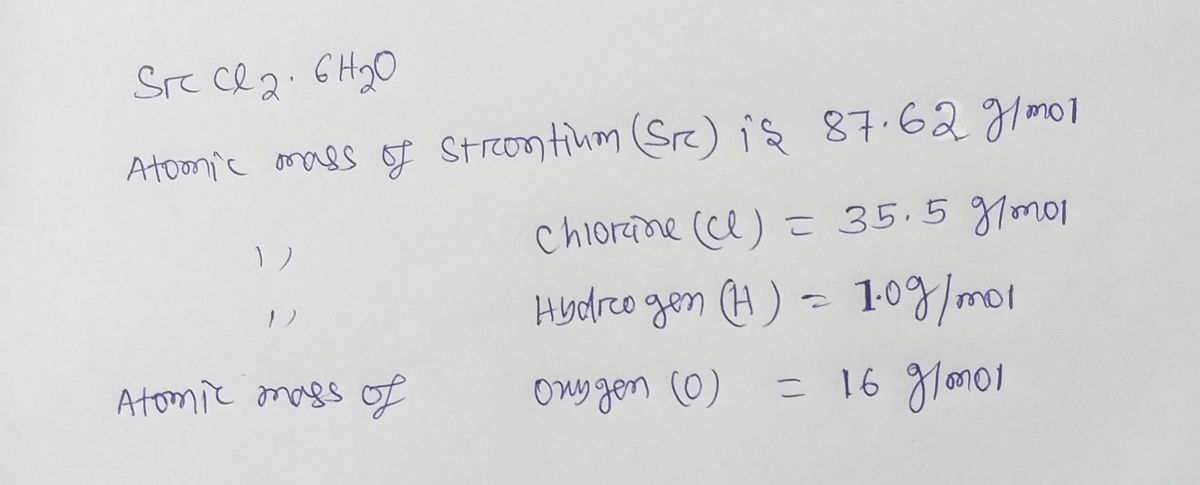 Sr Cl2. 6H2O
Atomic mass of Strontium (Sr) is 87.62 g/mol
,, Chlorine (Cl) = 35.5 g/mol
,, Hydrogen (H) = 1.0g/mol
Atomic mass of Oxygen (O) = 16 g/mol